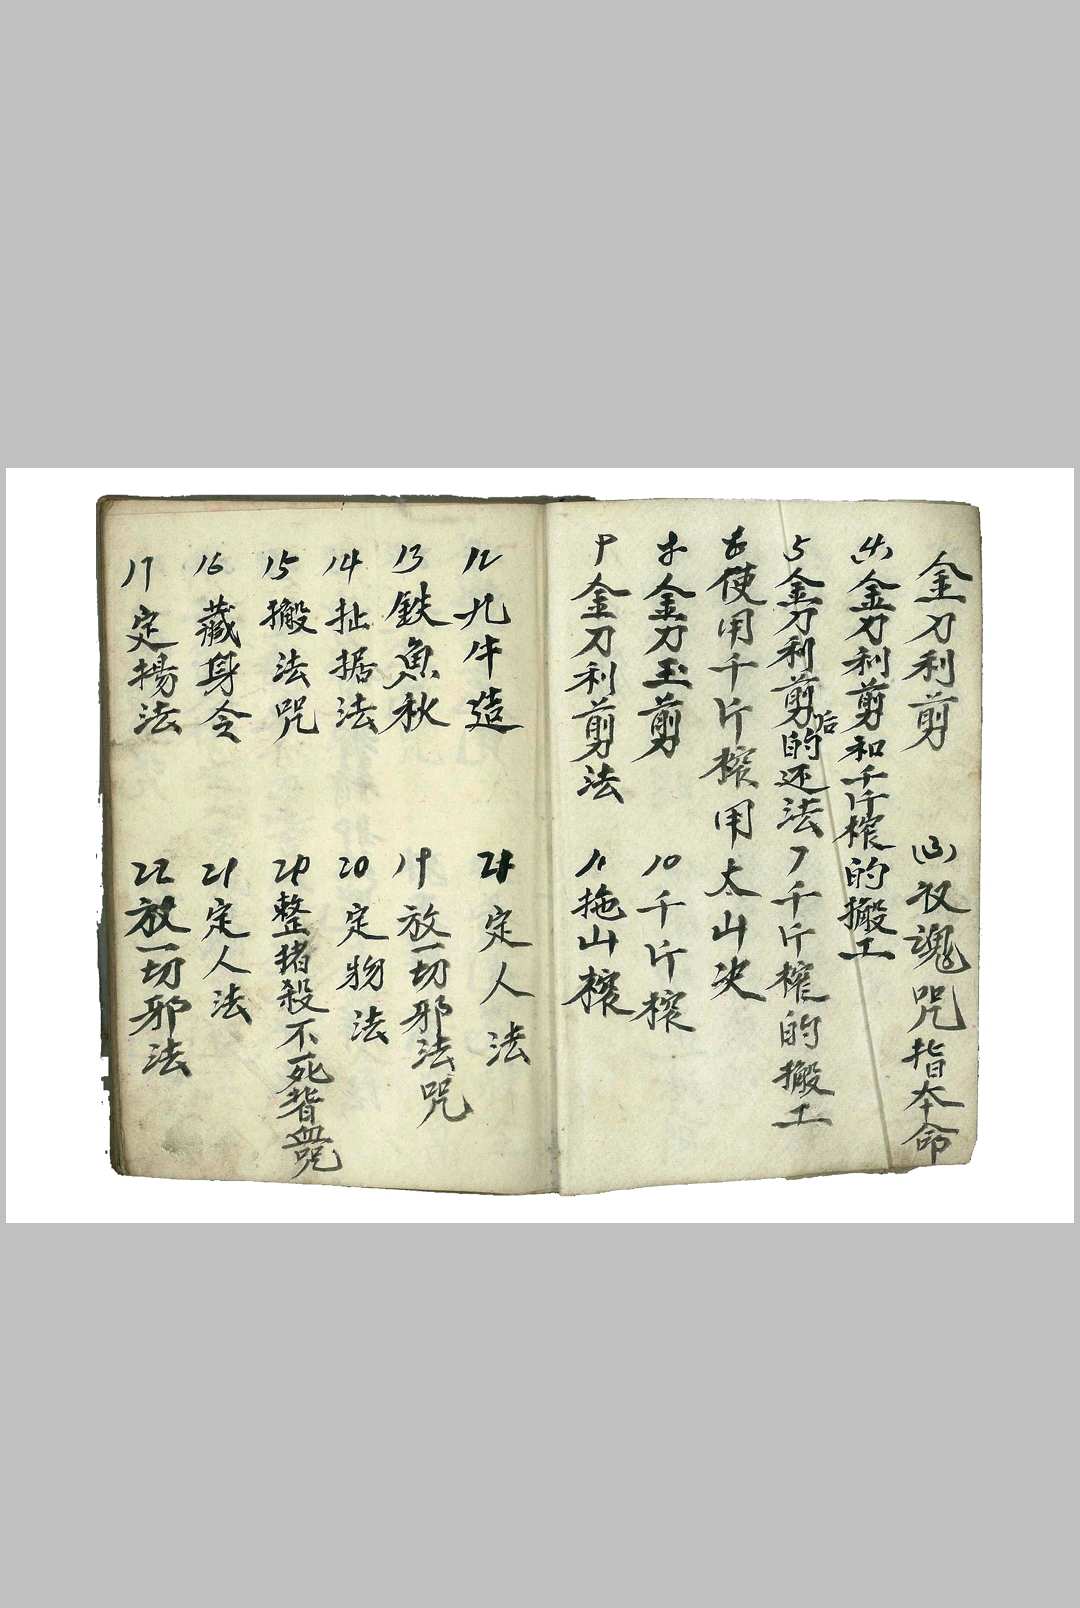 金刀利剪 (3)收魂咒指本命
(4)金刀利剪和千斤榨的搬工
5金刀利剪后的还法 7千斤榨的搬工
6使用千斤榨用太山决
8金刀玉剪 10千斤榨
9金刀利剪法 11拖山榨
12九牛造 21定人法
13鉄魚秋 19放一切邪法咒
14扯据法 20定物法
15搬法咒 20整猪殺不死皆血咒
16藏身令 21定人法
17定楊法 22放一切邪法